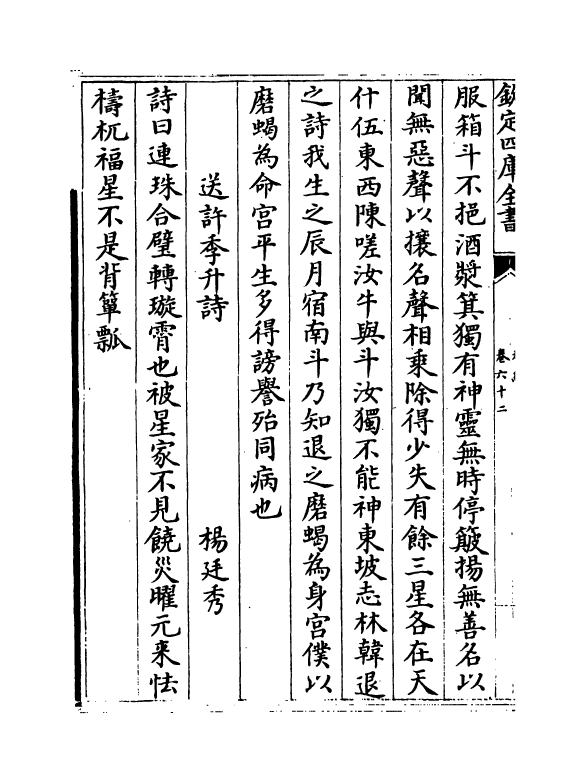 欽定四庫全書
卷六十二
服箱斗不挹酒漿箕獨有神靈無時停簸揚無善名以
聞無惡聲以攘名聲相乘除得少失有餘三星各在天
什伍東西陳嗟汝牛與斗汝獨不能神東坡志林韓退
之詩我生之辰月宿南斗乃知退之磨蝎為身宫僕以
磨蝎為命宫平生多得謗譽殆同病也
送許季升詩 楊廷秀
詩曰連珠合璧轉璇霄也被星家不見饒災曜元来怯
檮杌福星不是背簞瓢